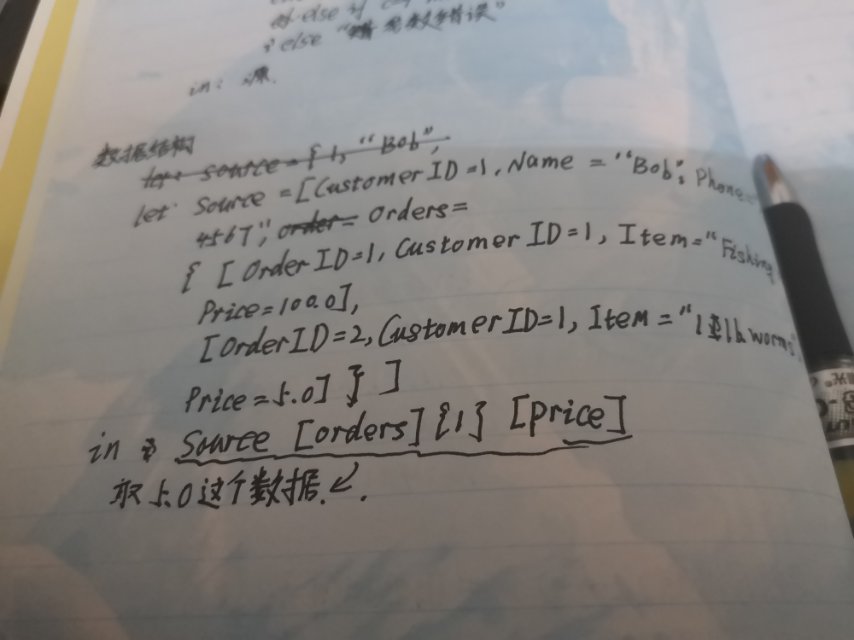 else if
else "错误"
in: 源
数据结构
let source = { 1, "Bob",
let Source = [Customer ID = 1, Name = "Bob", Phone
4567", order= Orders=
{ [Order ID=1, Customer ID=1, Item="Fishing
Price=100.0],
[OrderID=2, Customer ID=1, Item="1 lb worms",
Price=5.0] } ]
in Source [orders]{1} [price]
取5.0这个数据.